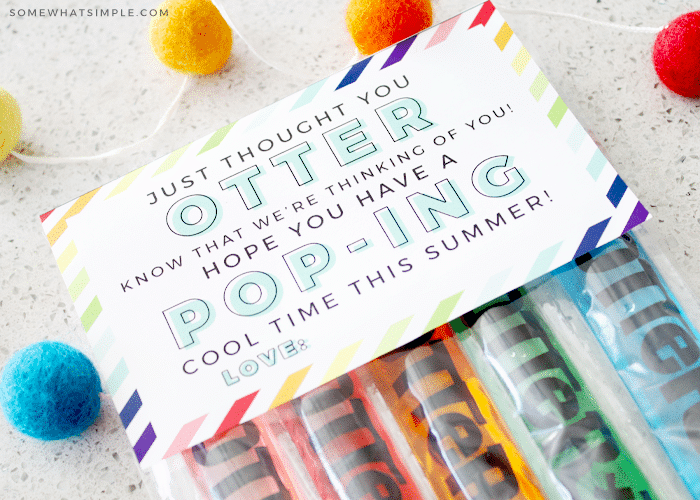 SOMEWHATSIMPLE.COM
JUST THOUGHT YOU
OTTER
KNOW THAT WE'RE THINKING OF YOU!
HOPE YOU HAVE A
POP-ING
COOL TIME THIS SUMMER!
LOVE: